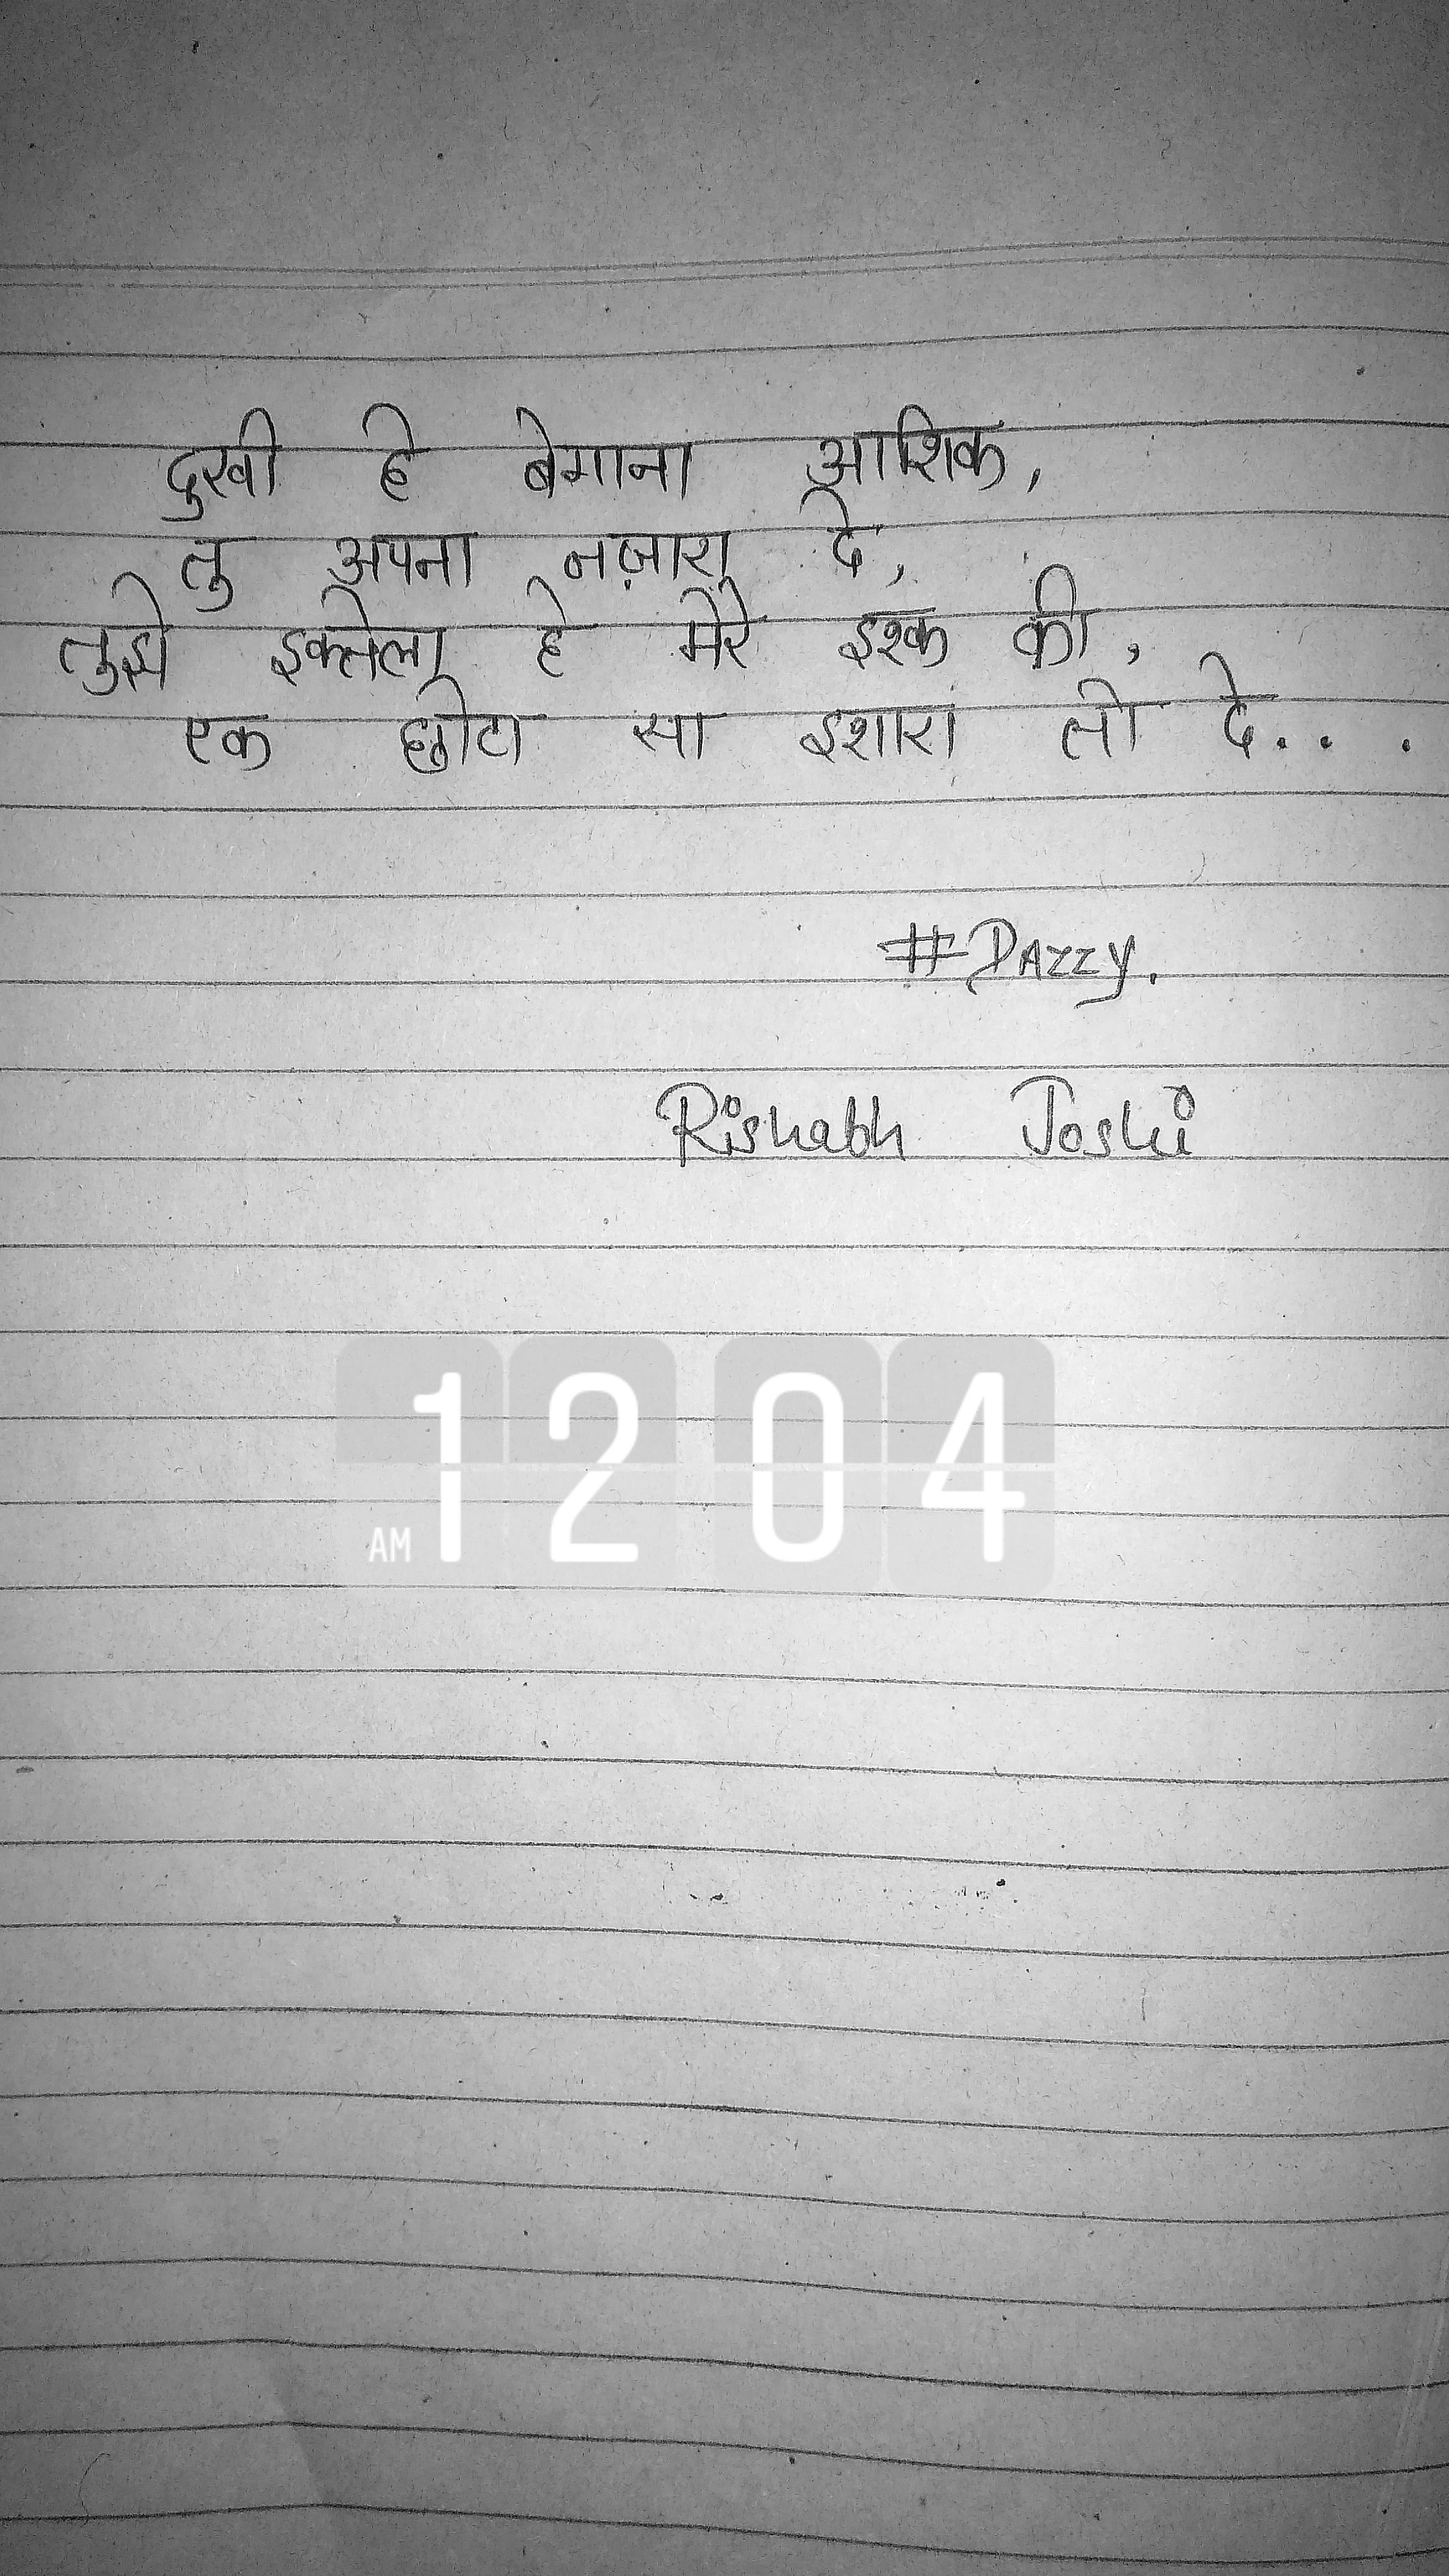 दुखी हे बेगाना आशिक,
तु अपना नज़ारा दे,
तुझे इक्तेला हे मेरे इश्क की,
एक छोटा सा इशारा तो दे...
#DAZZY.
Rishabh Joshi
AM 12 04